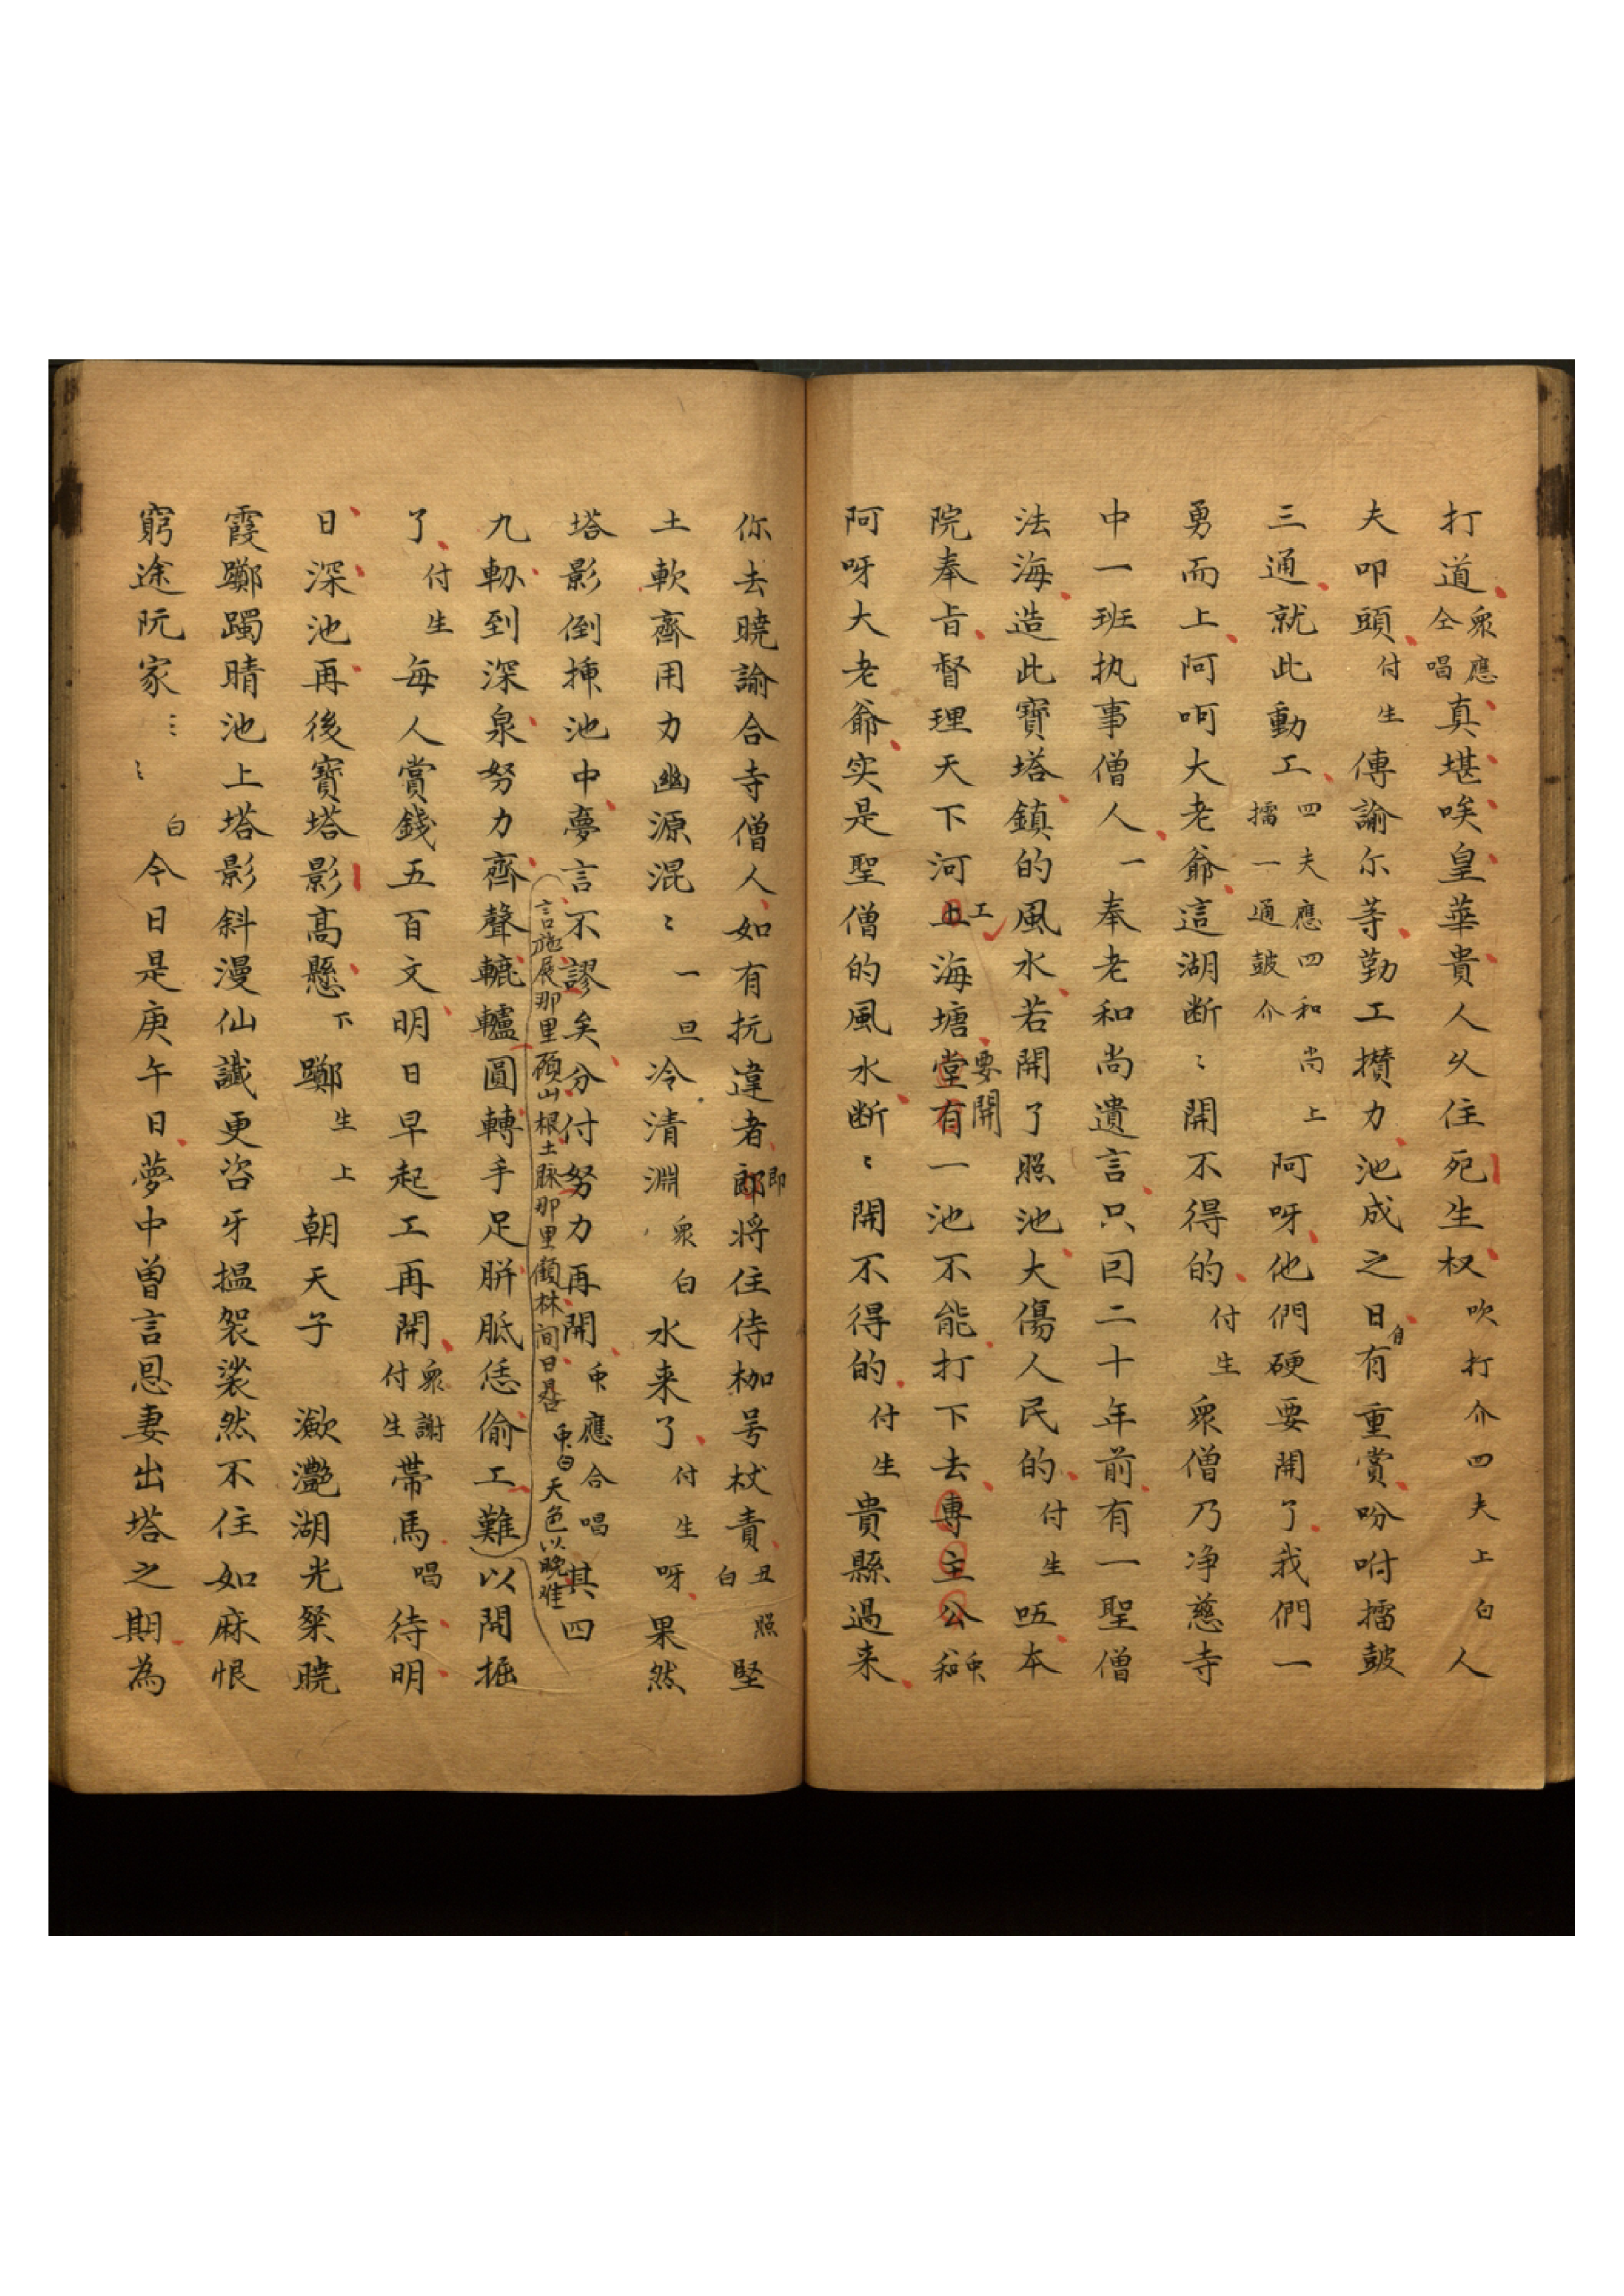 打道衆應仝唱真堪唉皇華貴人久住死生权吹打介四夫上白人
夫叩頭付生傳諭尔等勤工攅力池成之日自有重賞吩咐擂鼓
三通就此動工四夫應四和尚上擂一通鼓介阿呀他們硬要開了我們一
勇而上阿呵大老爺這湖断〻開不得的付生衆僧乃净慈寺
中一班执事僧人一奉老和尚遺言只囙二十年前有一聖僧
法海造此寳塔鎮的風水若開了照池大傷人民的付生唔本
院奉旨督理天下河工海塘要開一池不能打下去專主公和
阿呀大老爺实是聖僧的風水断〻開不得的付生貴縣過来
你去曉諭合寺僧人如有抗違者即將住侍枷号杖責丑白照堅
土軟齊用力幽源混〻一旦冷清淵衆白水来了付生呀果然
塔影倒揷池中夢言不謬矣分付努力再開應合唱其四
言施展那里顧山根土脉那里顧林間日晷白天色以晚难
九軔到深泉努力齊聲轆轤圓轉手足胼胝恁偷工難以開掘
了付生每人賞錢五百文明日早起工再開衆謝付生帶馬唱待明
日深池再後寳塔影高懸下躑生上朝天子瀲灧湖光粲曉
霞躑躅晴池上塔影斜漫仙識更咨牙揾袈裟然不住如麻恨
窮途阮家〻〻白今日是庚午日夢中曾言恩妻出塔之期為